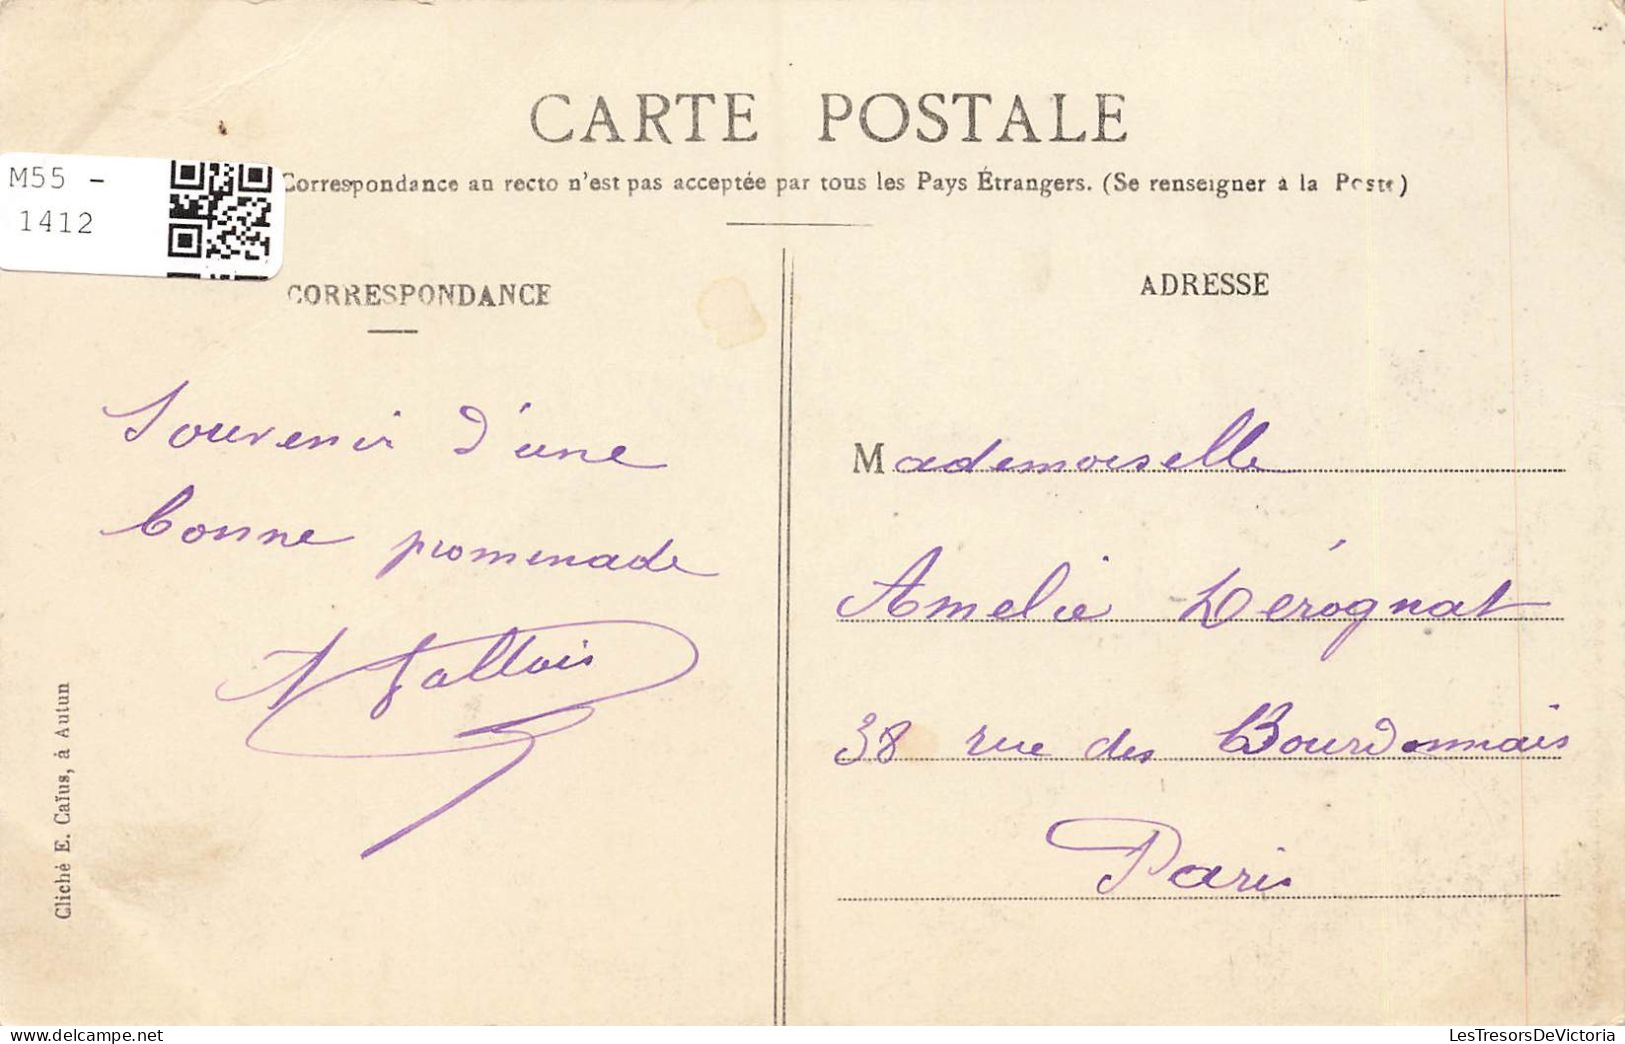 CARTE POSTALE
M55 -
1412
Correspondance au recto n'est pas acceptée par tous les Pays Étrangers. (Se renseigner à la Poste)
CORRESPONDANCE
Souvenir d'une
bonne promenade
ADRESSE
Mademoiselle
Amelie Dérognat
38 rue des Bourdonnais
Paris
Cliché E. Caïus, à Autun
LesTresorsDeVictoria
delcampe.net